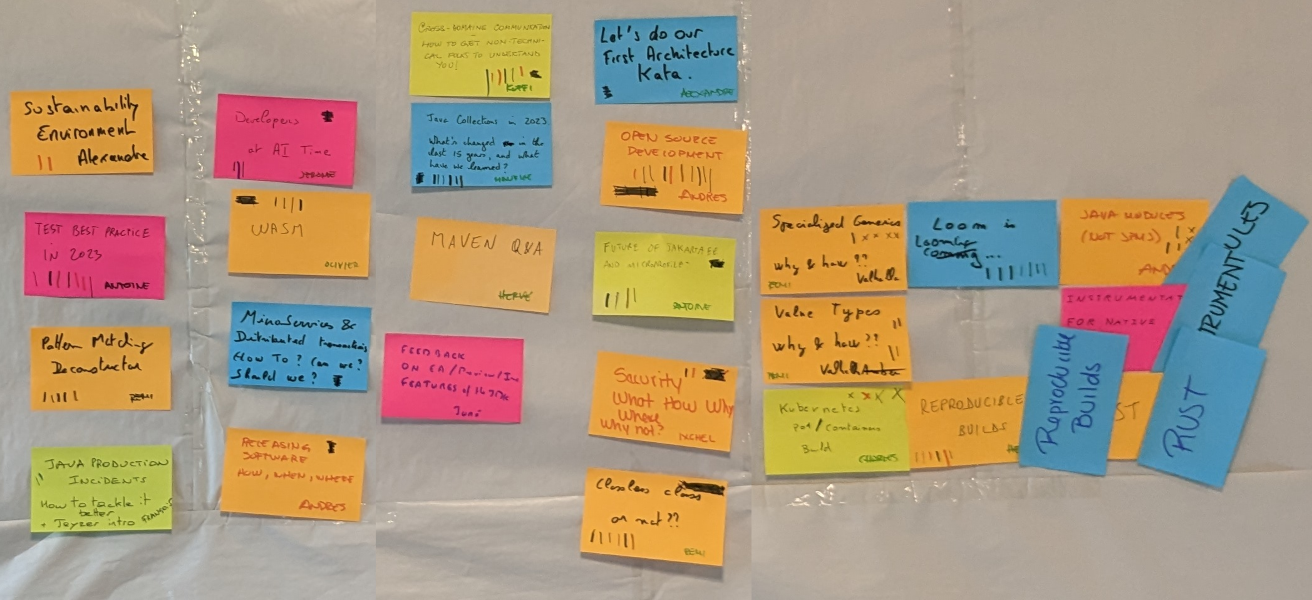 Sustainability
Environment
Alexandre
TEST BEST PRACTICE
IN 2023
ANTOINE
Pattern Matching
Deconstructor
REMI
JAVA PRODUCTION
INCIDENTS
How to tackle it
better
+ Teyzer intro
Developers
at AI Time
JEROME
WASM
OLIVIER
MicroServices &
Distributed transactions
How To? Can we?
Should we?
RELEASING
SOFTWARE
HOW, WHEN, WHERE
ANDRES
CROSS-DOMAINE COMMUNICATION
HOW TO GET NON-TECHNI-
CAL FOLKS TO UNDERSTAND
YOU!
Java Collections in 2023
What's changed in the
last 15 years, and what
have we learned?
MAURICE
MAVEN Q&A
HERVÉ
FEEDBACK
ON EA/Preview/In
FEATURES of the JDK
José
Let's do our
First Architecture
Kata.
ALEXANDRE
OPEN SOURCE
DEVELOPMENT
ANDRES
FUTURE OF JAKARTA EE
AND MICROPROFILE
ANTOINE
Security
What How Why
Where
Why not?
IXCHEL
Classless class
or not??
REMI
Specialized Generics
why & how??
REMI
Valhalla
Value Types
why & how??
REMI
Valhalla
Kubernetes
Pod/Containers
Build
ANDRES
Loom is
Looming
...
JAVA MODULES
(NOT JPMS)
AND
INSTRUMENTAT
FOR NATIVE
REPRODUCIBLE
BUILDS
Reproducible
Builds
ST
RUMENT
ULES
RUST